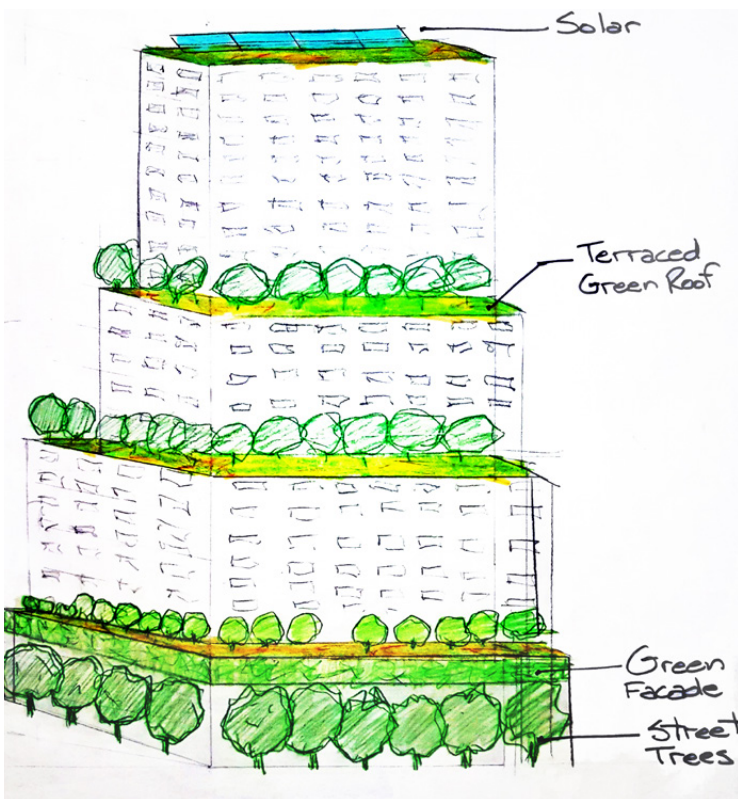 Solar
Terraced
Green Roof
Green
Facade
Street
Trees